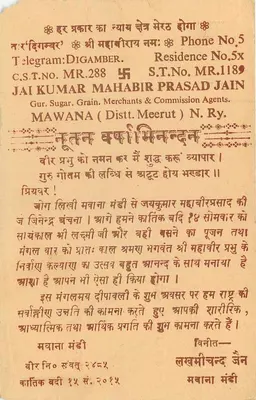 ❁ हर प्रकार का न्याय क्षेत्र मेरठ होगा ❁
तार 'दिगम्बर' ❁ श्री महावीराय नमः ❁ Phone No. 5
Telegram: DIGAMBER. Residence No. 5x
C.S.T. NO. MR. 288 卐 S.T. No. MR. 1189
JAI KUMAR MAHABIR PRASAD JAIN
Gur. Sugar. Grain. Merchants & Commission Agents.
MAWANA ( Distt. Meerut ) N. Ry.
नूतन वर्षाभिनन्दन
वीर प्रभु को नमन कर मैं शुद्ध करूं व्यापार।
गुरु गोतम की लब्धि से अटूट होय भण्डार॥
प्रियवर!
जोग लिखी मवाना मंडी से जयकुमार महावीरप्रसाद की
जै जिनेन्द्र बंचना। आगे हमने कातिक बदि १५ सोमवार को
सायंकाल श्री लक्ष्मी जी और बही बसने का पूजन तथा
मंगल वार को प्रातः काल श्रमण भगवंत श्री महावीर प्रभु के
निर्वाण कल्याण का उत्सव बहुत आनन्द के साथ मनाया है
आशा है आपने भी ऐसा ही किया होगा।
इस मंगलमय दीपावली के शुभ अवसर पर हम राष्ट्र की
सर्वाङ्गीण उन्नति की कामना करते हुए आपकी शारीरिक,
आध्यात्मिक तथा आर्थिक प्रगति की शुभ कामना करते हैं।
मवाना मंडी विनीत—
वीर नि० संवत् २४८५ लखमीचन्द जैन
कार्तिक बदी १५ सं. २०१५ मवाना मंडी